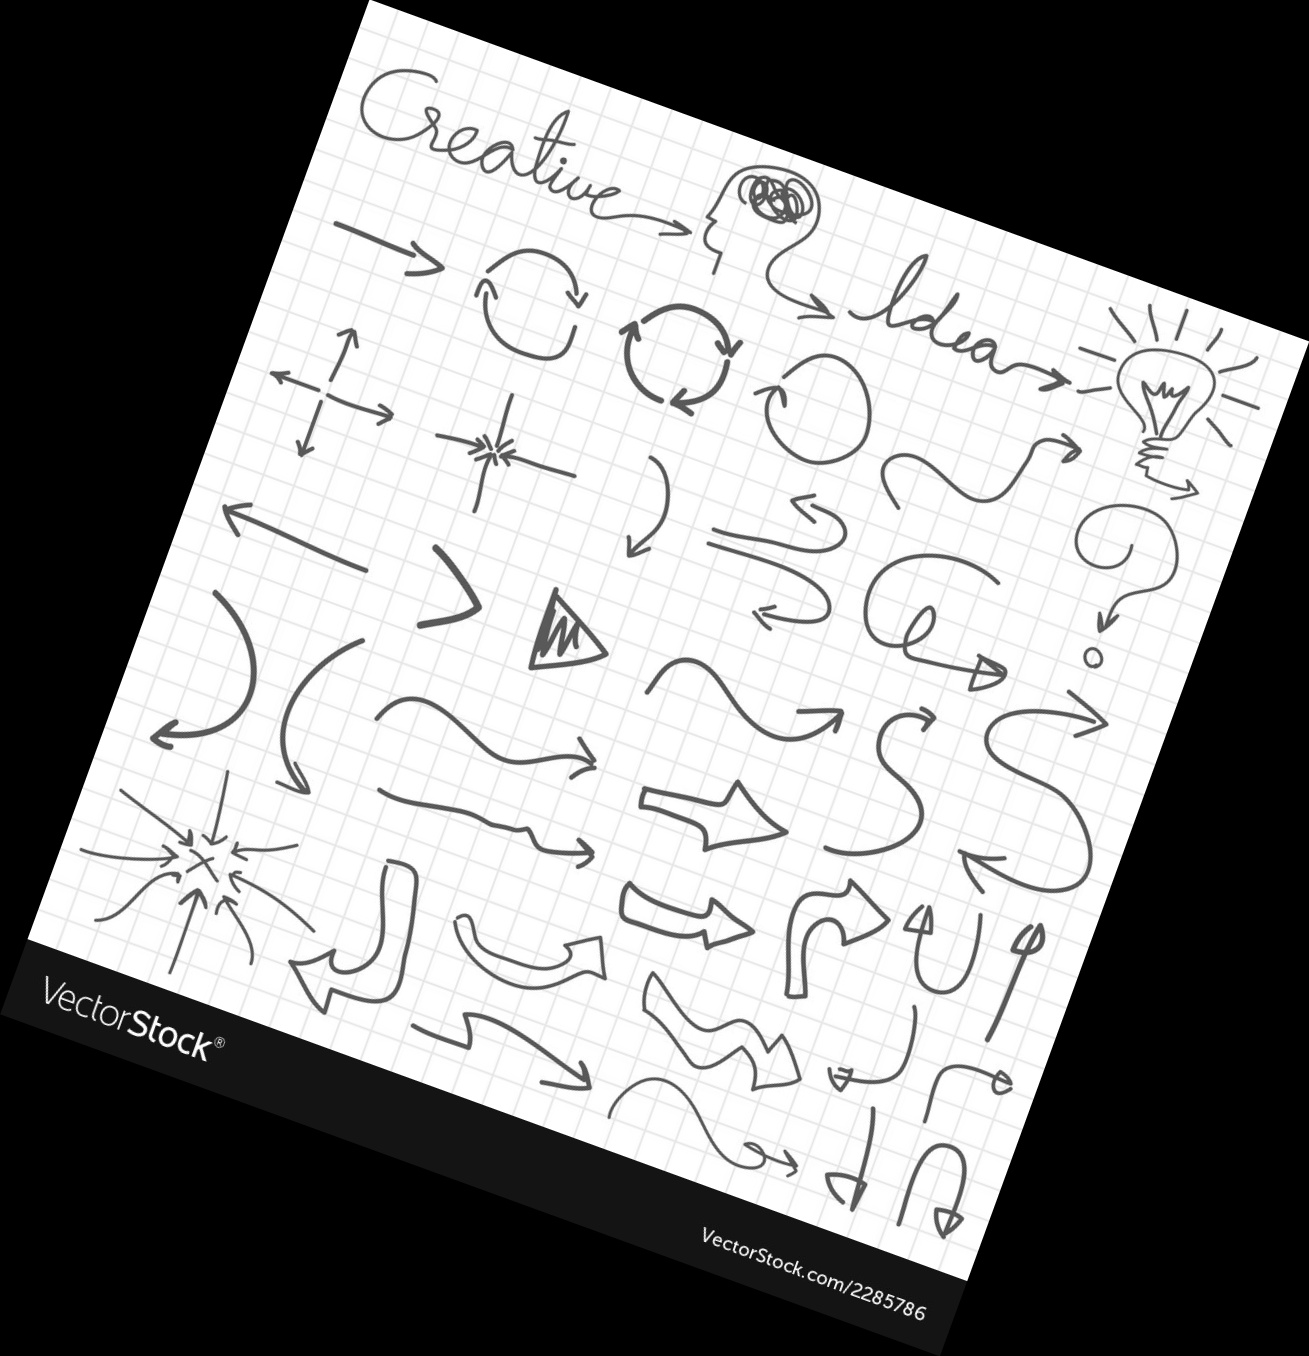 Creative
Idea
VectorStock®
VectorStock.com/2285786